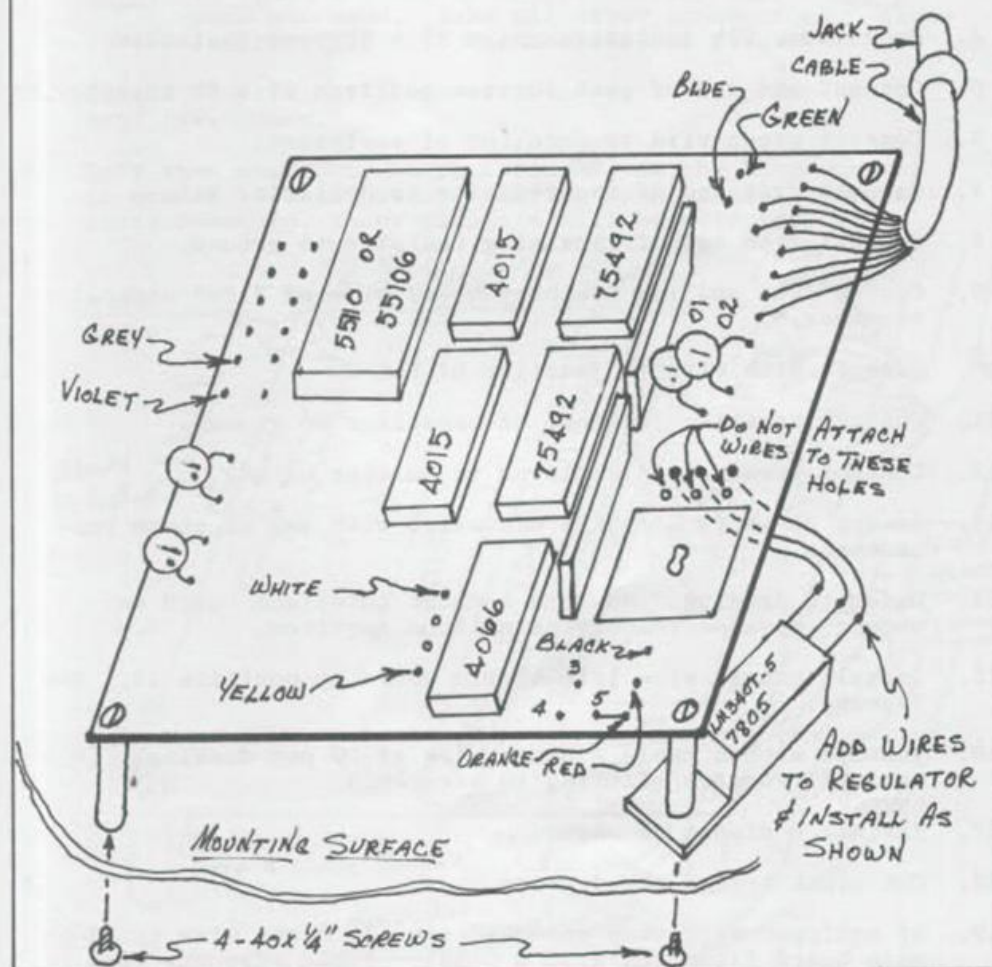 JACK
CABLE
BLUE
GREEN
55110
OR
55106
4015
75492
GREY
VIOLET
01
02
.1
.1
4015
75492
DO NOT ATTACH
WIRES TO THESE
HOLES
.1
.1
WHITE
4066
BLACK
YELLOW
3
4
5
ORANGE
RED
LM340T-5
7805
ADD WIRES
TO REGULATOR
& INSTALL AS
SHOWN
MOUNTING SURFACE
4-40x1/4" SCREWS